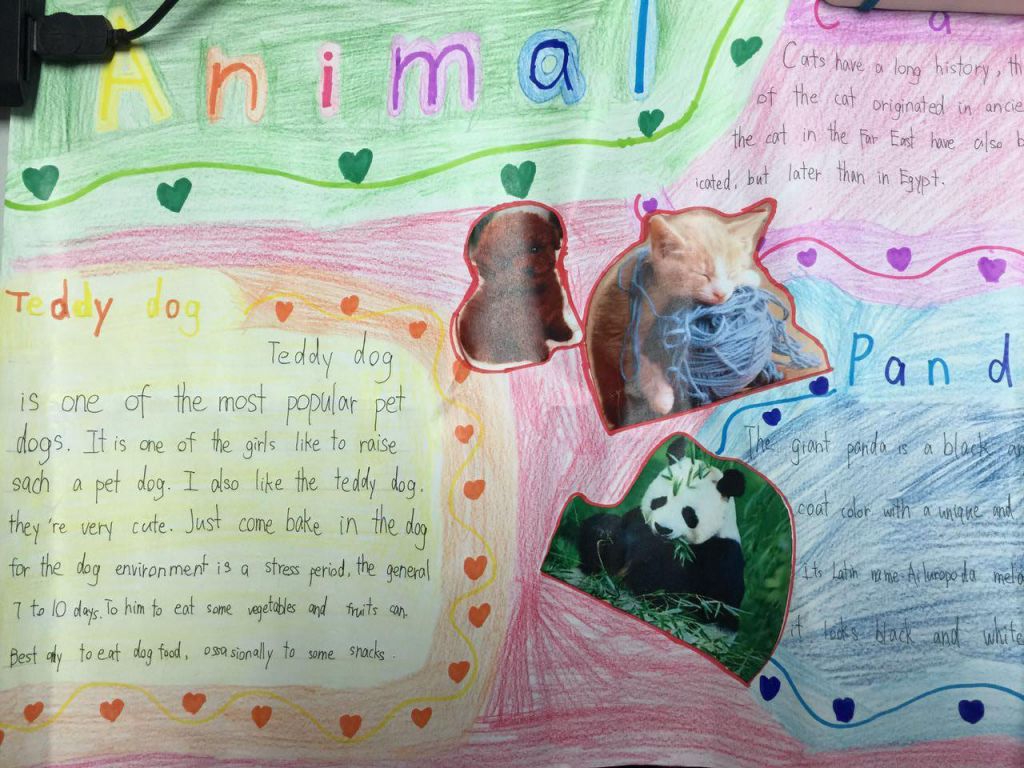 Animal
Ca
Cats have a long history, th
of the cat originated in ancie
the cat in the Far East have also b
icated, but later than in Egypt.
Teddy dog
Teddy dog
is one of the most popular pet
dogs. It is one of the girls like to raise
sach a pet dog. I also like the teddy dog.
they're very cute. Just come bake in the dog
for the dog environment is a stress period, the general
7 to 10 days. To him to eat some vegetables and fruits can.
Best to eat dog food, ossasionally to some snacks.
Pand
The giant panda is a black an
coat color with a unique and
Its Latin name Ailuropoda mela
it looks black and white